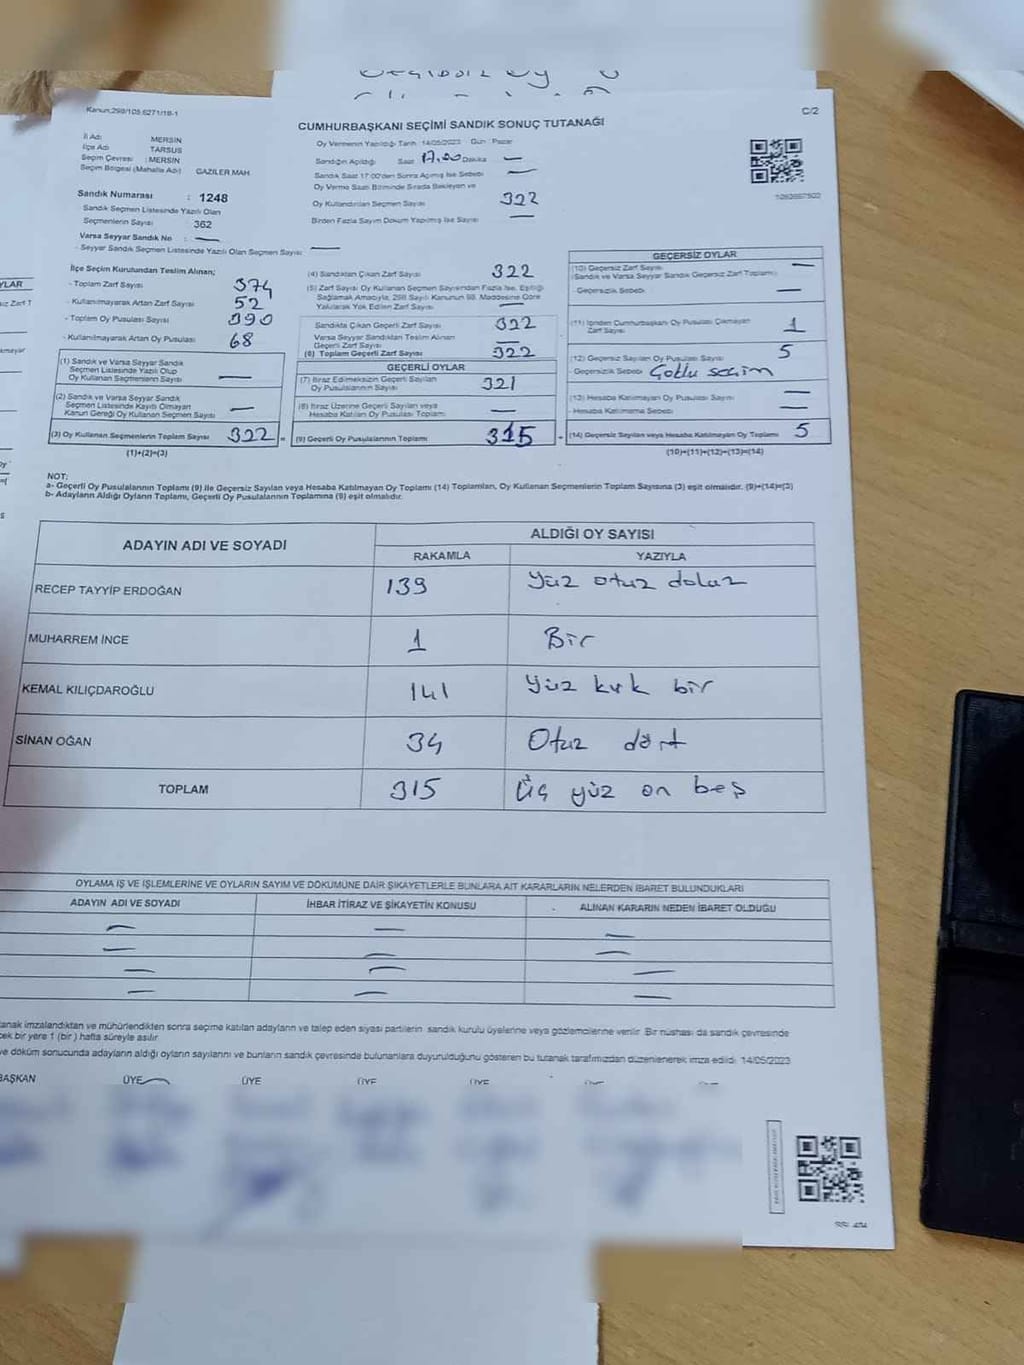 Kanun:298/105,6271/18-1
C/2
CUMHURBAŞKANI SEÇİMİ SANDIK SONUÇ TUTANAĞI
İl Adı MERSİN
İlçe Adı TARSUS
Seçim Çevresi : MERSİN
Seçim Bölgesi (Mahalle Adı) GAZİLER MAH.
Sandık Numarası : 1248
Sandık Seçmen Listesinde Yazılı Olan
Seçmenlerin Sayısı : 362
Varsa Seyyar Sandık No : —
- Seyyar Sandık Seçmen Listesinde Yazılı Olan Seçmen Sayısı —
Oy Vermenin Yapıldığı Tarih 14/05/2023 Gün Pazar
Sandığın Açıldığı Saat 17.00 Dakika —
Sandık Saat 17:00'den Sonra Açılmış İse Sebebi —
Oy Verme Saati Bitiminde Sırada Bekleyen ve
Oy Kullandırılan Seçmen Sayısı 322
Birden Fazla Sayım Döküm Yapılmış İse Sayısı —
İlçe Seçim Kurulundan Teslim Alınan;
- Toplam Zarf Sayısı 374
- Kullanılmayarak Artan Zarf Sayısı 52
- Toplam Oy Pusulası Sayısı 390
- Kullanılmayarak Artan Oy Pusulası 68
(1) Sandık ve Varsa Seyyar Sandık
Seçmen Listesinde Yazılı Olup
Oy Kullanan Seçmenlerin Sayısı —
(2) Sandık ve Varsa Seyyar Sandık
Seçmen Listesinde Kayıtlı Olmayan
Kanun Gereği Oy Kullanan Seçmen Sayısı —
(3) Oy Kullanan Seçmenlerin Toplam Sayısı 322
(1)+(2)=(3)
(4) Sandıktan Çıkan Zarf Sayısı 322
(5) Zarf Sayısı Oy Kullanan Seçmen Sayısından Fazla İse, Eşitliği
Sağlamak Amacıyla, 298 Sayılı Kanunun 98. Maddesine Göre
Yakılarak Yok Edilen Zarf Sayısı —
Sandıkta Çıkan Geçerli Zarf Sayısı 322
Varsa Seyyar Sandıktan Teslim Alınan
Geçerli Zarf Sayısı —
(6) Toplam Geçerli Zarf Sayısı 322
GEÇERLİ OYLAR
(7) İtiraz Edilmeksizin Geçerli Sayılan
Oy Pusulalarının Sayısı 321
(8) İtiraz Üzerine Geçerli Sayılan veya
Hesaba Katılan Oy Pusulası Toplamı —
(9) Geçerli Oy Pusulalarının Toplamı 315
GEÇERSİZ OYLAR
(10) Geçersiz Zarf Sayısı
(Sandık ve Varsa Seyyar Sandık Geçersiz Zarf Toplamı) —
- Geçersizlik Sebebi —
(11) İçinden Cumhurbaşkanı Oy Pusulası Çıkmayan
Zarf Sayısı 1
(12) Geçersiz Sayılan Oy Pusulası Sayısı 5
- Geçersizlik Sebebi Çoklu seçim
(13) Hesaba Katılmayan Oy Pusulası Sayısı —
- Hesaba Katılmama Sebebi —
(14) Geçersiz Sayılan veya Hesaba Katılmayan Oy Toplamı 5
(10)+(11)+(12)+(13)=(14)
NOT:
a- Geçerli Oy Pusulalarının Toplamı (9) ile Geçersiz Sayılan veya Hesaba Katılmayan Oy Toplamı (14) Toplamları, Oy Kullanan Seçmenlerin Toplam Sayısına (3) eşit olmalıdır. (9)+(14)=(3)
b- Adayların Aldığı Oyların Toplamı, Geçerli Oy Pusulalarının Toplamına (9) eşit olmalıdır.
ADAYIN ADI VE SOYADI
ALDIĞI OY SAYISI
RAKAMLA YAZIYLA
RECEP TAYYİP ERDOĞAN 139 Yüz otuz dokuz
MUHARREM İNCE 1 Bir
KEMAL KILIÇDAROĞLU 141 Yüz kırk bir
SİNAN OĞAN 34 Otuz dört
TOPLAM 315 Üç yüz on beş
OYLAMA İŞ VE İŞLEMLERİNE VE OYLARIN SAYIM VE DÖKÜMÜNE DAİR ŞİKAYETLERLE BUNLARA AİT KARARLARIN NELERDEN İBARET BULUNDUKLARI
ADAYIN ADI VE SOYADI İHBAR İTİRAZ VE ŞİKAYETİN KONUSU ALINAN KARARIN NEDEN İBARET OLDUĞU
— — —
— — —
— — —
— — —
anak imzalandıktan ve mühürlendikten sonra seçime katılan adayların ve talep eden siyasi partilerin sandık kurulu üyelerine veya gözlemcilerine verilir. Bir nüshası da sandık çevresinde
cek bir yere 1 (bir) hafta süreyle asılır.
ve döküm sonucunda adayların aldığı oyların sayılarını ve bunların sandık çevresinde bulunanlara duyurulduğunu gösteren bu tutanak tarafımızdan düzenlenerek imza edildi. 14/05/2023
BAŞKAN ÜYE ÜYE ÜYE ÜYE